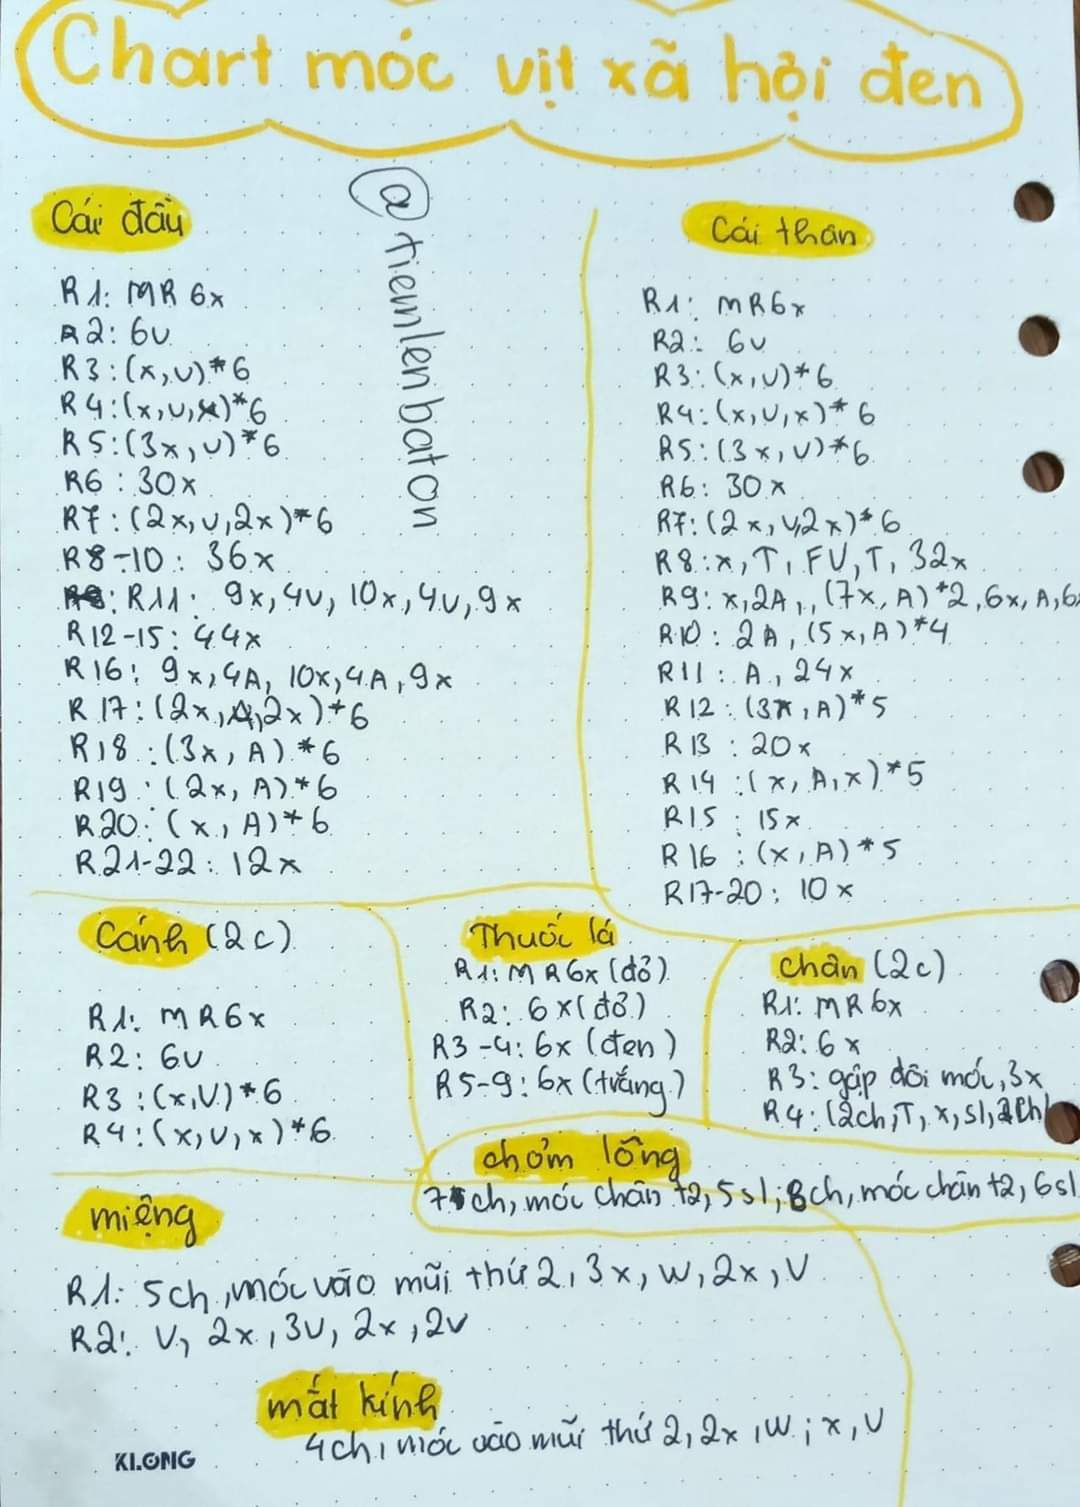 Chart móc vịt xã hội đen
@tiemlenbaton
Cái đầu
R1: MR 6x
R2: 6v
R3: (x,v)*6
R4: (x,v,x)*6
R5: (3x,v)*6
R6: 30x
R7: (2x,v,2x)*6
R8-10: 36x
R11: 9x,4v, 10x,4v,9x
R12-15: 44x
R16: 9x,4A, 10x,4A,9x
R17: (2x,A,2x)*6
R18: (3x, A)*6
R19: (2x, A)*6
R20: (x, A)*6
R21-22: 12x
Cái thân
R1: MR6x
R2: 6v
R3: (x,v)*6
R4: (x,v,x)*6
R5: (3x,v)*6
R6: 30x
R7: (2x,v,2x)*6
R8: x, T, FV, T, 32x
R9: x,2A,, (7x, A)*2,6x, A,6x
R10: 2A, (5x,A)*4
R11: A, 24x
R12: (3x,A)*5
R13: 20x
R14: (x,A,x)*5
R15: 15x
R16: (x,A)*5
R17-20: 10x
Cánh (2c)
R1: MR6x
R2: 6v
R3: (x,V)*6
R4: (x,v,x)*6
Thuốc lá
R1: MR6x (đỏ)
R2: 6x (đỏ)
R3-4: 6x (đen)
R5-9: 6x (trắng)
chân (2c)
R1: MR6x
R2: 6x
R3: gấp đôi móc, 3x
R4: (2ch,T, x,sl,2ch)
chỏm lông
7ch, móc chân t2, 5sl; 8ch, móc chân t2, 6sl
miệng
R1: 5ch, móc vào mũi thứ 2, 3x, w, 2x, V
R2: V, 2x, 3v, 2x, 2v
mắt kính
4ch, móc vào mũi thứ 2, 2x, w; x, V
KLONG